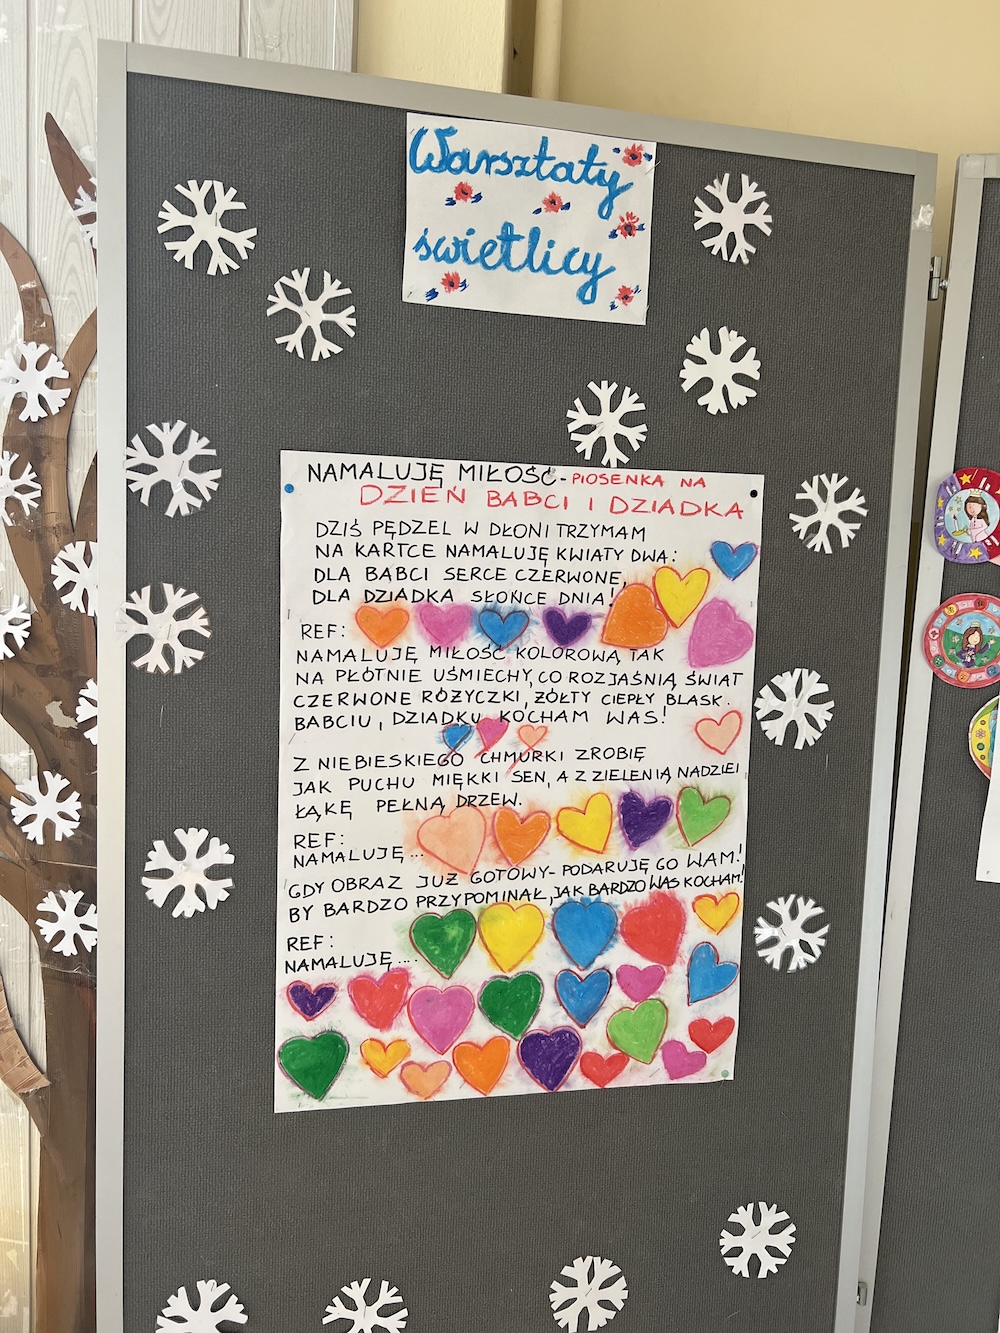 Warsztaty
świetlicy
NAMALUJĘ MIŁOŚĆ - PIOSENKA NA
DZIEŃ BABCI I DZIADKA
DZIŚ PĘDZEL W DŁONI TRZYMAM
NA KARTCE NAMALUJĘ KWIATY DWA:
DLA BABCI SERCE CZERWONE,
DLA DZIADKA SŁOŃCE DNIA!
REF:
NAMALUJĘ MIŁOŚĆ KOLOROWĄ TAK
NA PŁÓTNIE UŚMIECHY, CO ROZJAŚNIĄ ŚWIAT
CZERWONE RÓŻYCZKI, ŻÓŁTY CIEPŁY BLASK.
BABCIU, DZIADKU KOCHAM WAS!
Z NIEBIESKIEGO CHMURKI ZROBIĘ
JAK PUCHU MIĘKKI SEN, A Z ZIELENIĄ NADZIEI
ŁĄKĘ PEŁNĄ DRZEW.
REF:
NAMALUJĘ...
GDY OBRAZ JUŻ GOTOWY - PODARUJĘ GO WAM!
BY BARDZO PRZYPOMINAŁ, JAK BARDZO WAS KOCHAM!
REF:
NAMALUJĘ....